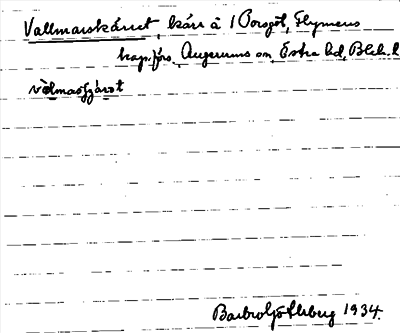 Vallmarskärret, kärr å 1 Porsgöl, Flymens
kap.förs. Augerums sn, Östra hd, Blek. l.
vòlmasjȧrǝt
Barbro Göthberg 1934.